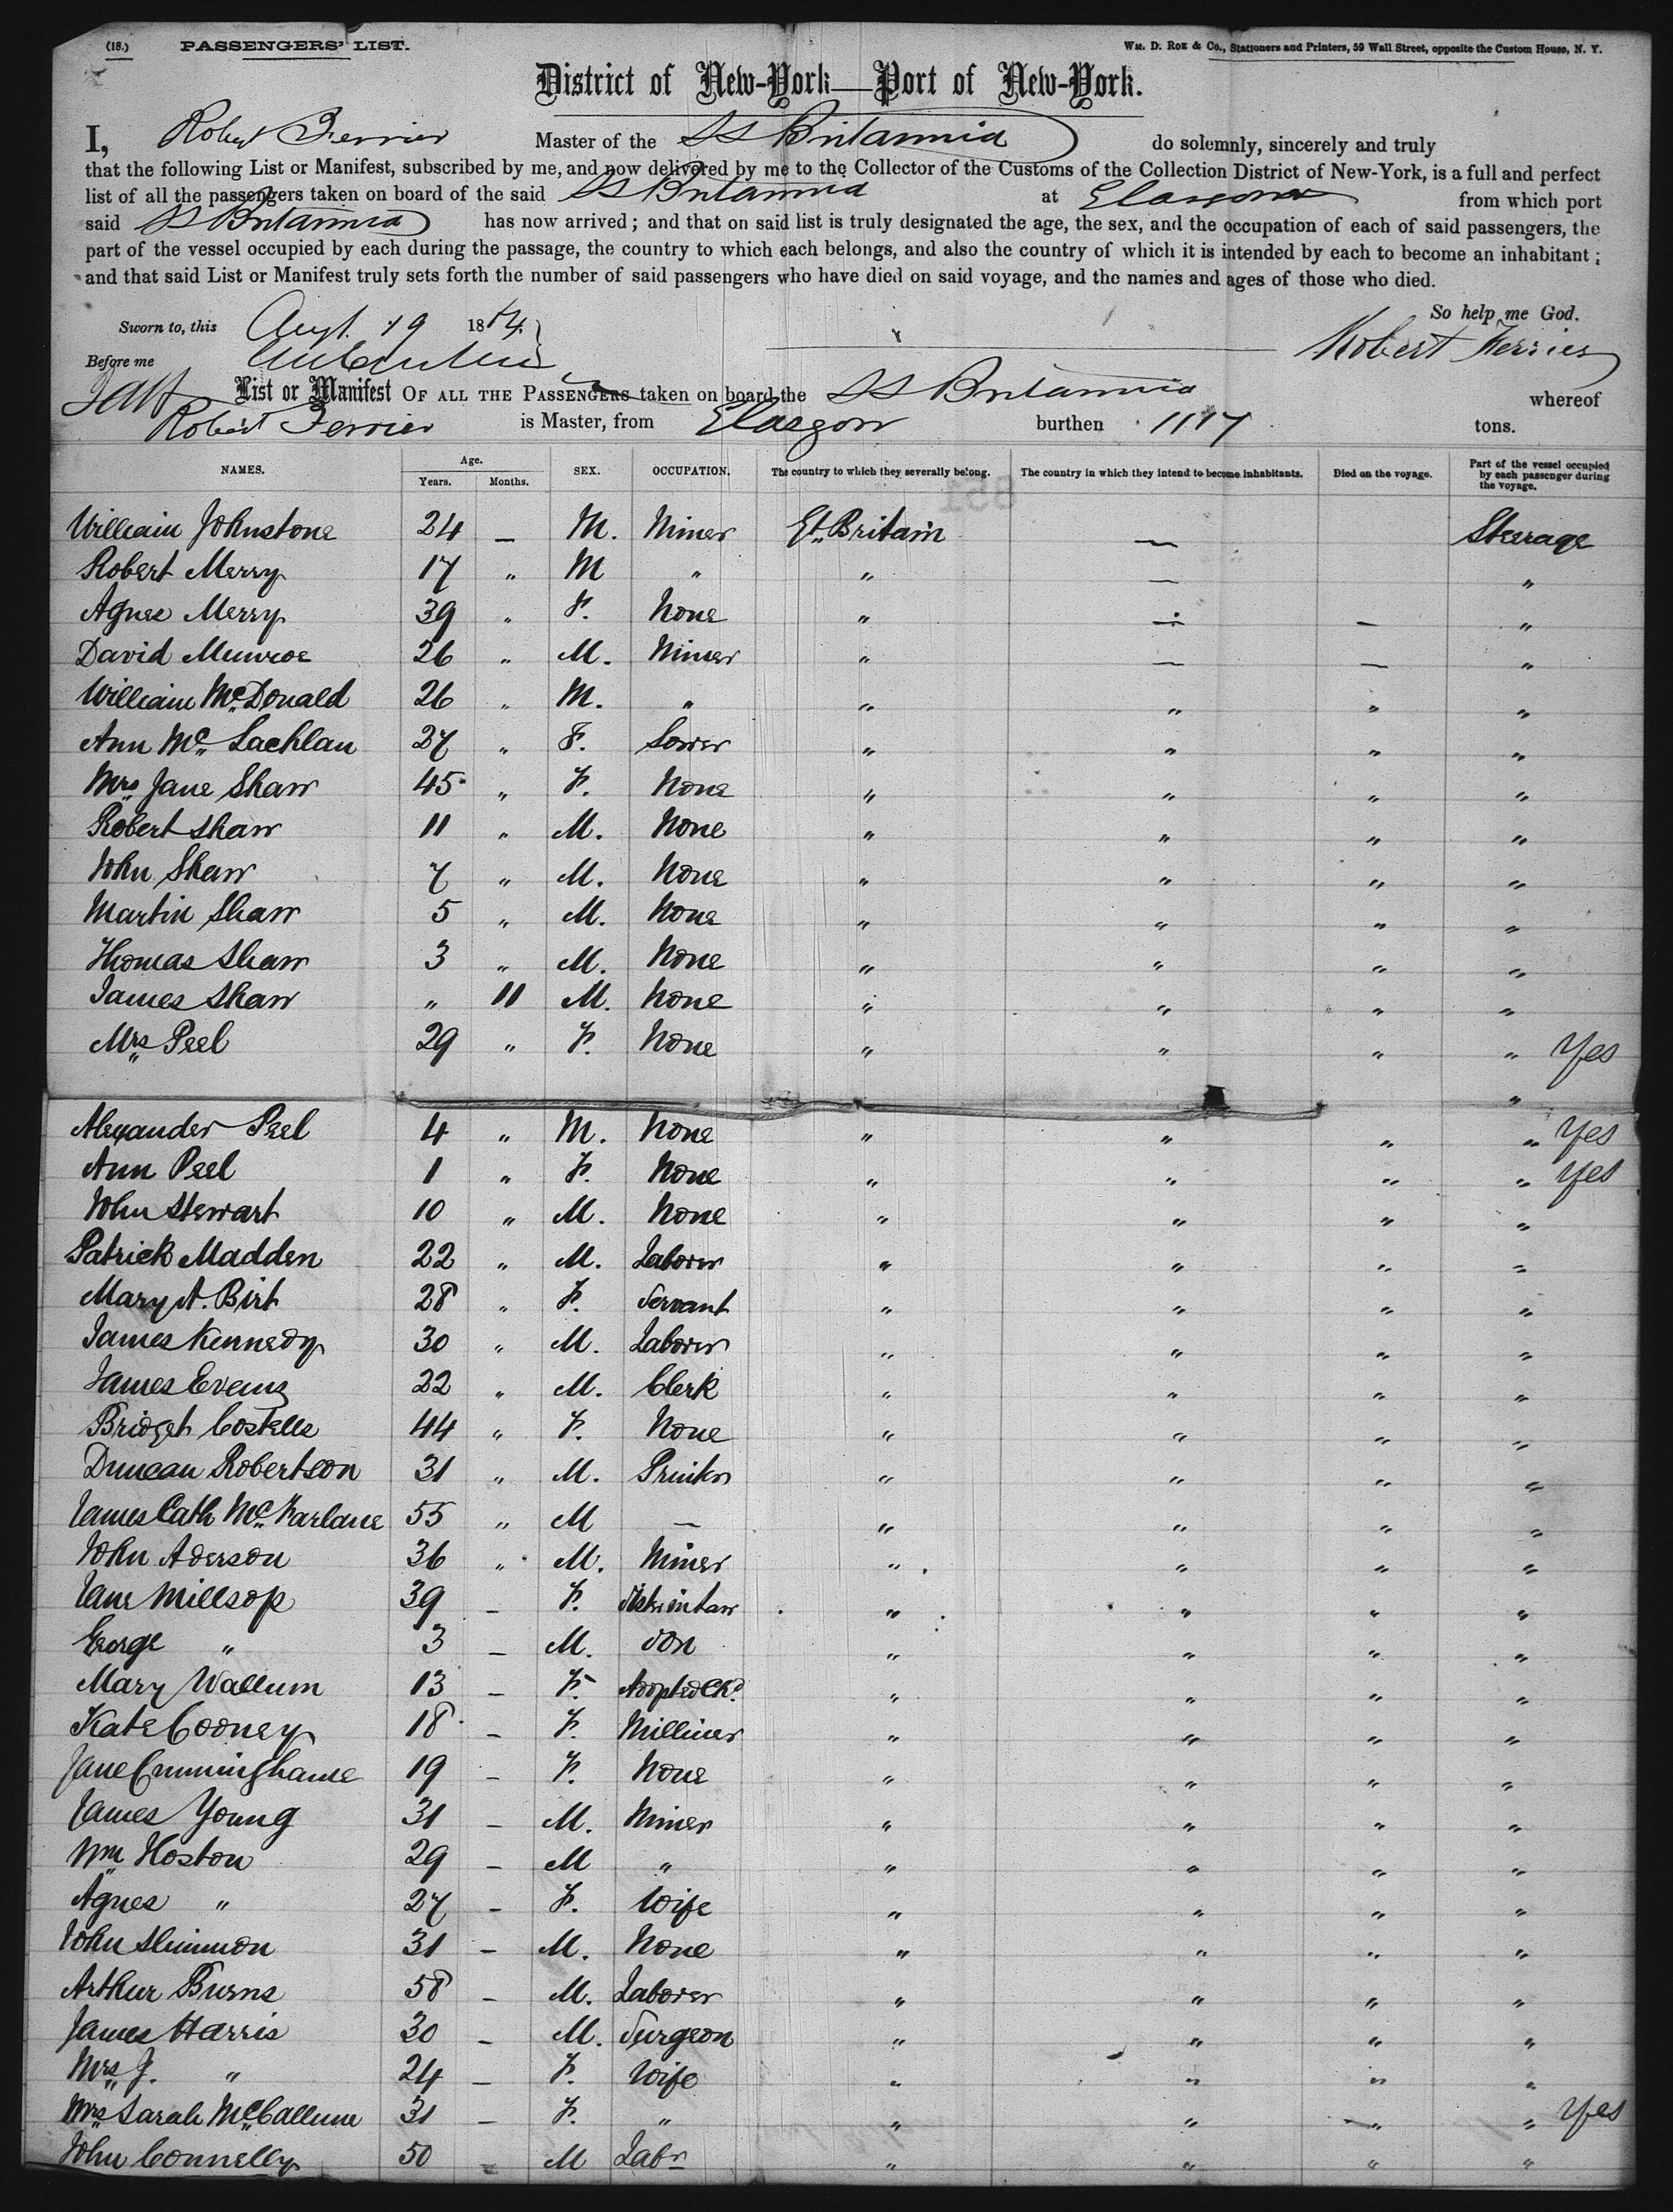 (18.) PASSENGERS' LIST. Wm. D. Roe & Co., Stationers and Printers, 59 Wall Street, opposite the Custom House, N. Y.
District of New-York—Port of New-York.
I, Robert Ferrier Master of the SS Britannia do solemnly, sincerely and truly
that the following List or Manifest, subscribed by me, and now delivered by me to the Collector of the Customs of the Collection District of New-York, is a full and perfect
list of all the passengers taken on board of the said SS Britannia at Glasgow from which port
said SS Britannia has now arrived; and that on said list is truly designated the age, the sex, and the occupation of each of said passengers, the
part of the vessel occupied by each during the passage, the country to which each belongs, and also the country of which it is intended by each to become an inhabitant;
and that said List or Manifest truly sets forth the number of said passengers who have died on said voyage, and the names and ages of those who died.
So help me God.
Sworn to, this Augt. 19 1884
Robert Ferrier
Before me
List or Manifest OF ALL THE PASSENGERS taken on board the SS Britannia whereof
Robert Ferrier is Master, from Glasgow burthen 1117 tons.
NAMES. Age. Years. Months. SEX. OCCUPATION. The country to which they severally belong. The country in which they intend to become inhabitants. Died on the voyage. Part of the vessel occupied by each passenger during the voyage.
William Johnstone 24 — M. Miner Gt. Britain — Steerage
Robert Merry 17 " M " " — "
Agnes Merry 39 " F. None " — — "
David Munroe 26 " M. Miner " — — "
William McDonald 26 " M. " " " " "
Ann McLachlan 27 " F. Sower " " " "
Mrs Jane Shaw 45 " F. None " " " "
Robert Shaw 11 " M. None " " " "
John Shaw 7 " M. None " " " "
Martin Shaw 5 " M. None " " " "
Thomas Shaw 3 " M. None " " " "
James Shaw " 11 M. None " " " "
Mrs Peel 29 " F. None " " " " Yes
"
Alexander Peel 4 " M. None " " " " Yes
Ann Peel 1 " F. None " " " " Yes
John Stewart 10 " M. None " " " "
Patrick Madden 22 " M. Laborer " " " "
Mary A. Birt 28 " F. Servant " " " "
James Kennedy 30 " M. Laborer " " " "
James Evans 22 " M. Clerk " " " "
Bridget Costello 44 " F. None " " " "
Duncan Robertson 31 " M. Printer " " " "
James Cath McFarlane 55 " M — " " " "
John Aderson 36 " M. Miner " " " "
Jane Millsop 39 — F. Sister in law " " " "
George " 3 — M. Son " " " "
Mary Wallum 13 — F. Adopted Chd. " " " "
Kate Cooney 18 — F. Milliner " " " "
Jane Cunninghame 19 — F. None " " " "
James Young 31 — M. Miner " " " "
Wm Hoston 29 — M " " " " "
Agnes " 27 — F. Wife " " " "
John Slimmon 31 — M. None " " " "
Arthur Burns 58 — M. Laborer " " " "
James Harris 30 — M. Surgeon " " " "
Mrs J. " 24 — F. Wife " " " "
Mrs Sarah McCallum 31 — F. " " " " " Yes
John Connelly 50 — M Labr " " " "